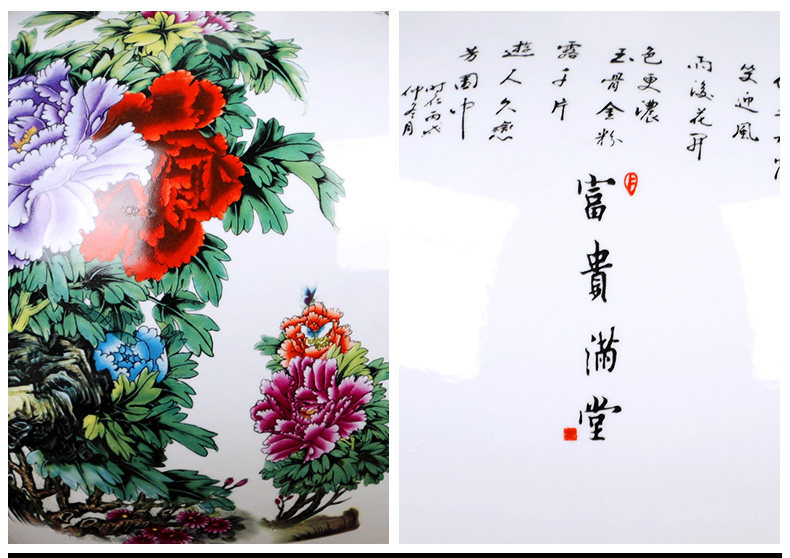 笑迎風
雨後花开
色更濃
玉骨金粉
露千片
遊人久戀
芳園中
时在丙戌
仲冬月
富貴滿堂